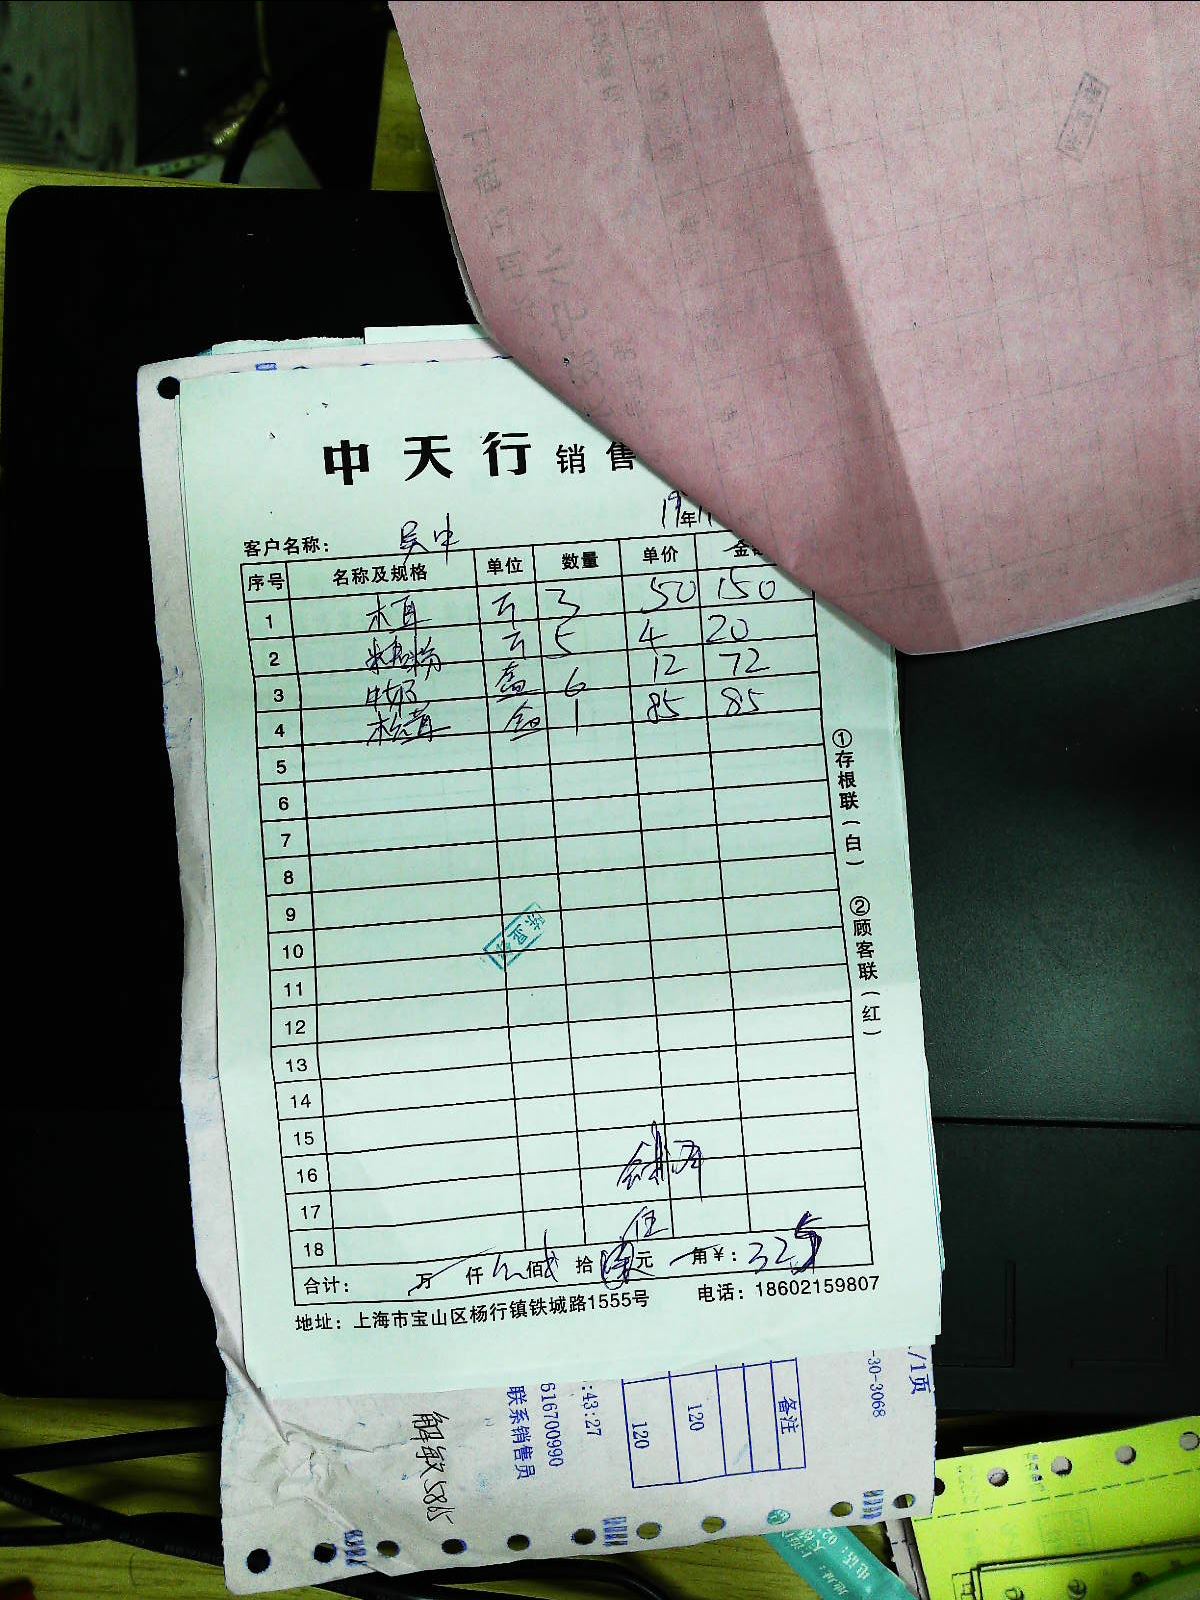 中天行 销售
19年
客户名称： 吴中
序号 名称及规格 单位 数量 单价 金额
1 木耳 斤 3 50 150
2 斤 5 4 20
3 牛奶 盒 6 12 72
4 松茸 盒 1 85 85
5
6
7
8
9
10
11
12
13
14
15
16
17
18
伍
合计： 万 仟 佰 拾 元 角 ¥： 325
地址：上海市宝山区杨行镇铁城路1555号 电话：18602159807
①存根联（白）
②顾客联（红）
/1页
-30-3068
备注
120
120
:43:27
616700990
联系销售员
解敏5865